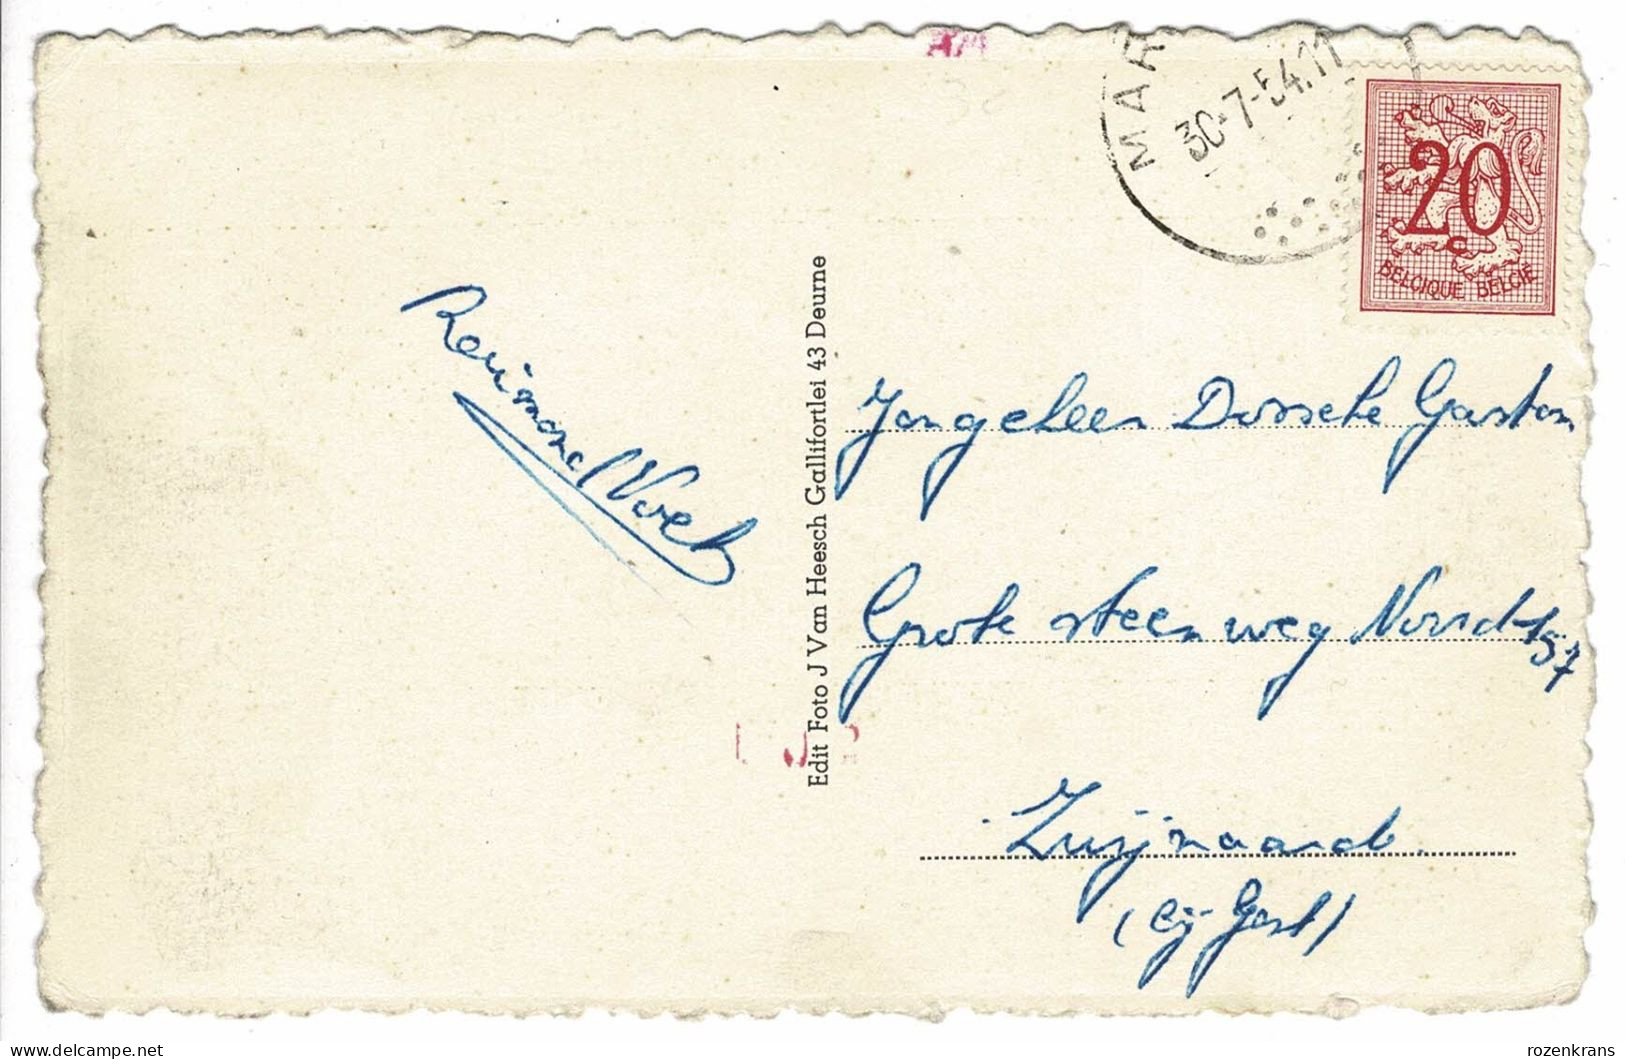 MAR
30-7-54.11
20
c
BELGIQUE BELGIË
Reimond Voet
Edit Foto J Van Heesch Gallifortlei 43 Deurne
Jongeheer Dossche Gaston
Grote steenweg Noord 157
Zwijnaard
(bij Gent)
delcampe.net
rozenkrans